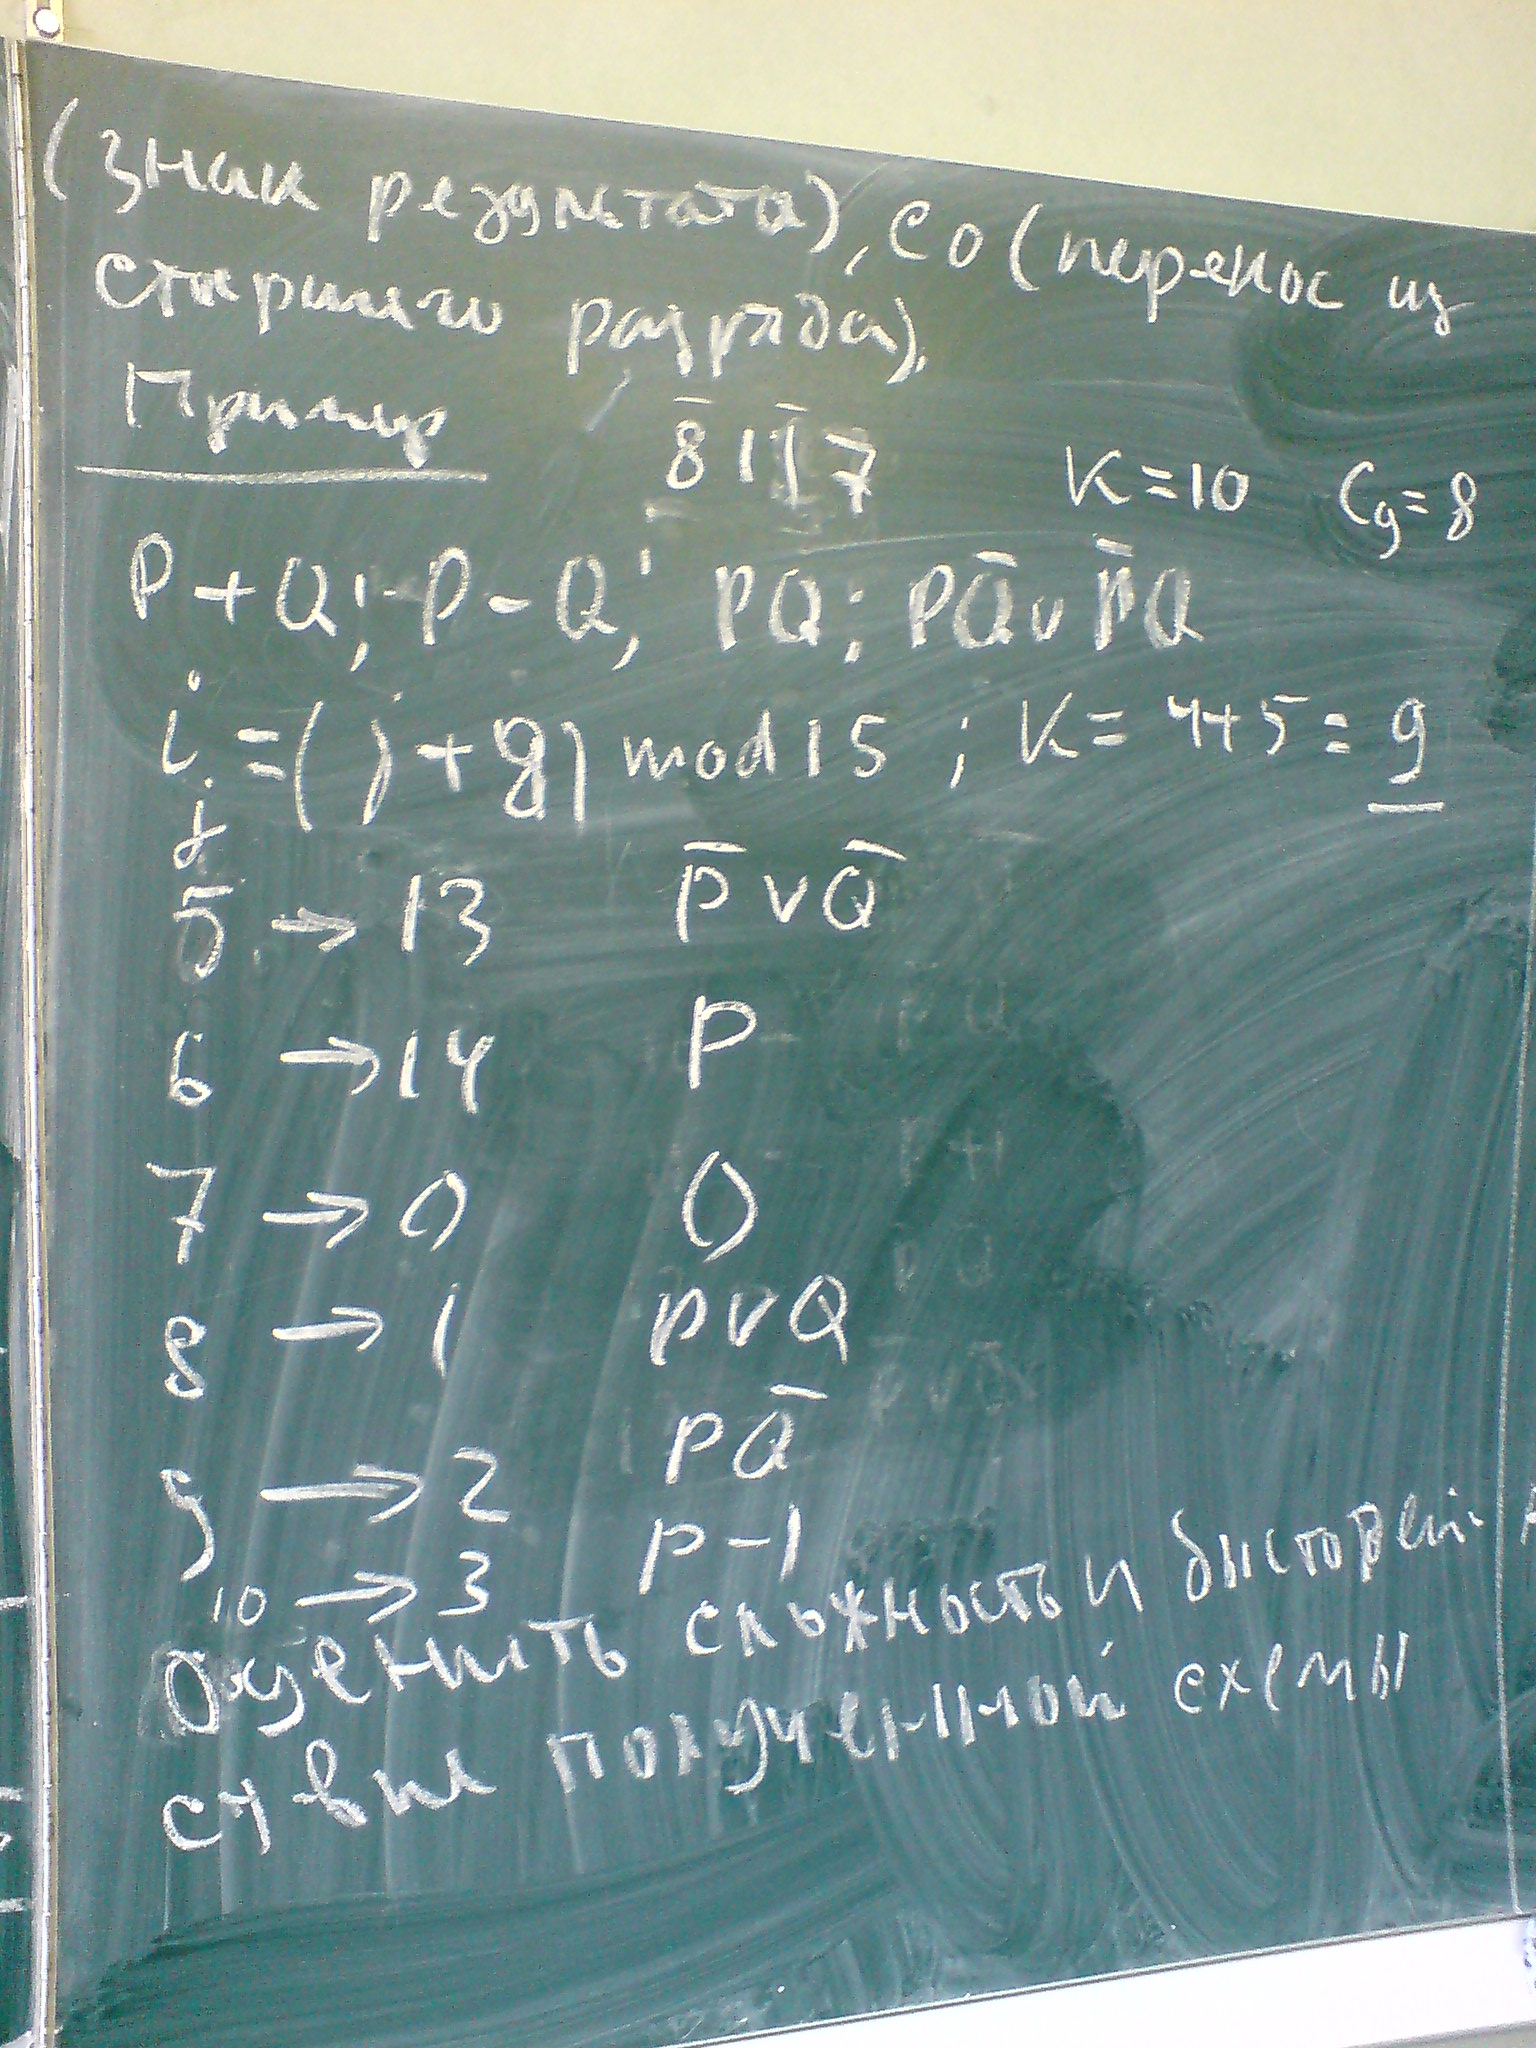 (знак результата), CO (перенос из
старшего разряда).
Пример 8̄ 1 1̄ 7 K=10 Cg=8
P+Q; P-Q; PQ; PQ̄ v P̄Q
i=(j+8) mod 15; K=4+5=9
j
5 → 13 P̄ v Q̄
6 → 14 P
7 → 0 0
8 → 1 P v Q
9 → 2 PQ̄
10 → 3 P-1
Оценить сложность и быстродей-
ствие полученной схемы